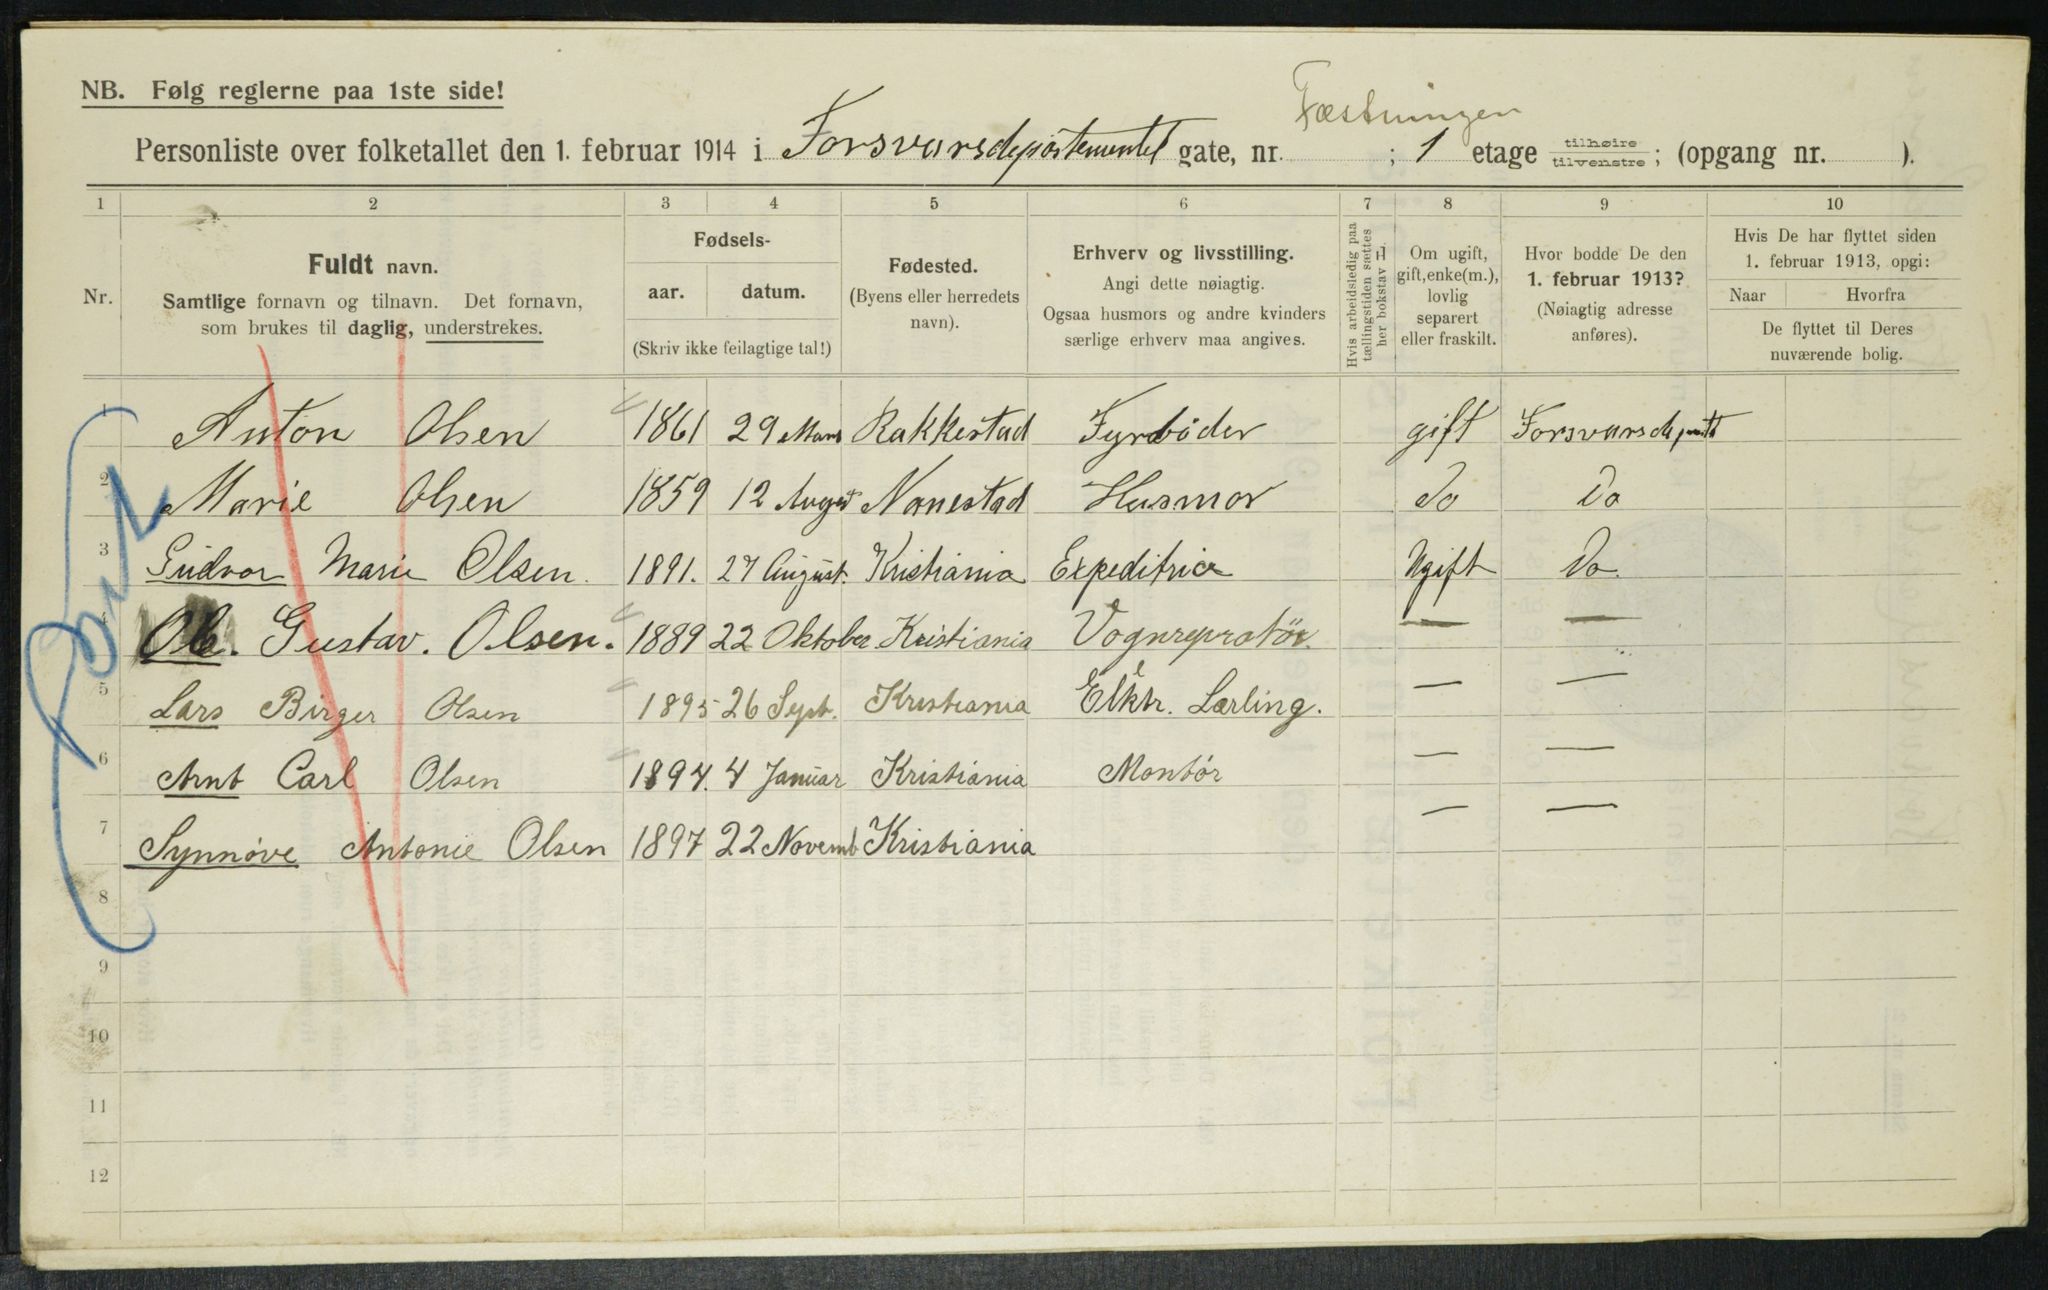 NB. Følg reglerne paa 1ste side!
Fæstningen
Personliste over folketallet den 1. februar 1914 i Forsvarsdepartementet gate, nr. ; 1 etage tilhøire tilvenstre; (opgang nr. ).
1 2 3 4 5 6 7 8 9 10
Nr.
Fuldt navn.
Samtlige fornavn og tilnavn. Det fornavn,
som brukes til daglig, understrekes.
Fødsels-
aar. datum.
(Skriv ikke feilagtige tal!)
Fødested.
(Byens eller herredets
navn).
Erhverv og livsstilling.
Angi dette nøiagtig.
Ogsaa husmors og andre kvinders
særlige erhverv maa angives.
Hvis arbeidsledig paa
tællingstiden sættes
her bokstav L
Om ugift,
gift, enke(m.),
lovlig
separert
eller fraskilt.
Hvor bodde De den
1. februar 1913?
(Nøiagtig adresse
anføres).
Hvis De har flyttet siden
1. februar 1913, opgi:
Naar Hvorfra
De flyttet til Deres
nuværende bolig.
1 Anton Olsen 1861 29 Mars Rakkestad Fyrbøder gift
2 Marie Olsen 1859 12 August Nanestad Husmor Do Do
3 Gudvor Marie Olsen. 1891. 27 August. Kristiania Expeditrice Ugift Do.
4 Ole. Gustav. Olsen. 1889 22 Oktober Kristiania Vognrepratör. — —
5 Lars Birger Olsen 1895 26 Sept. Kristiania Elektr. Lærling. — —
6 Arnt Carl Olsen 1894. 4 Januar Kristiania Montör — —
7 Synnøve Antonie Olsen 1897 22 Novemb Kristiania — —
8
9
10
11
12